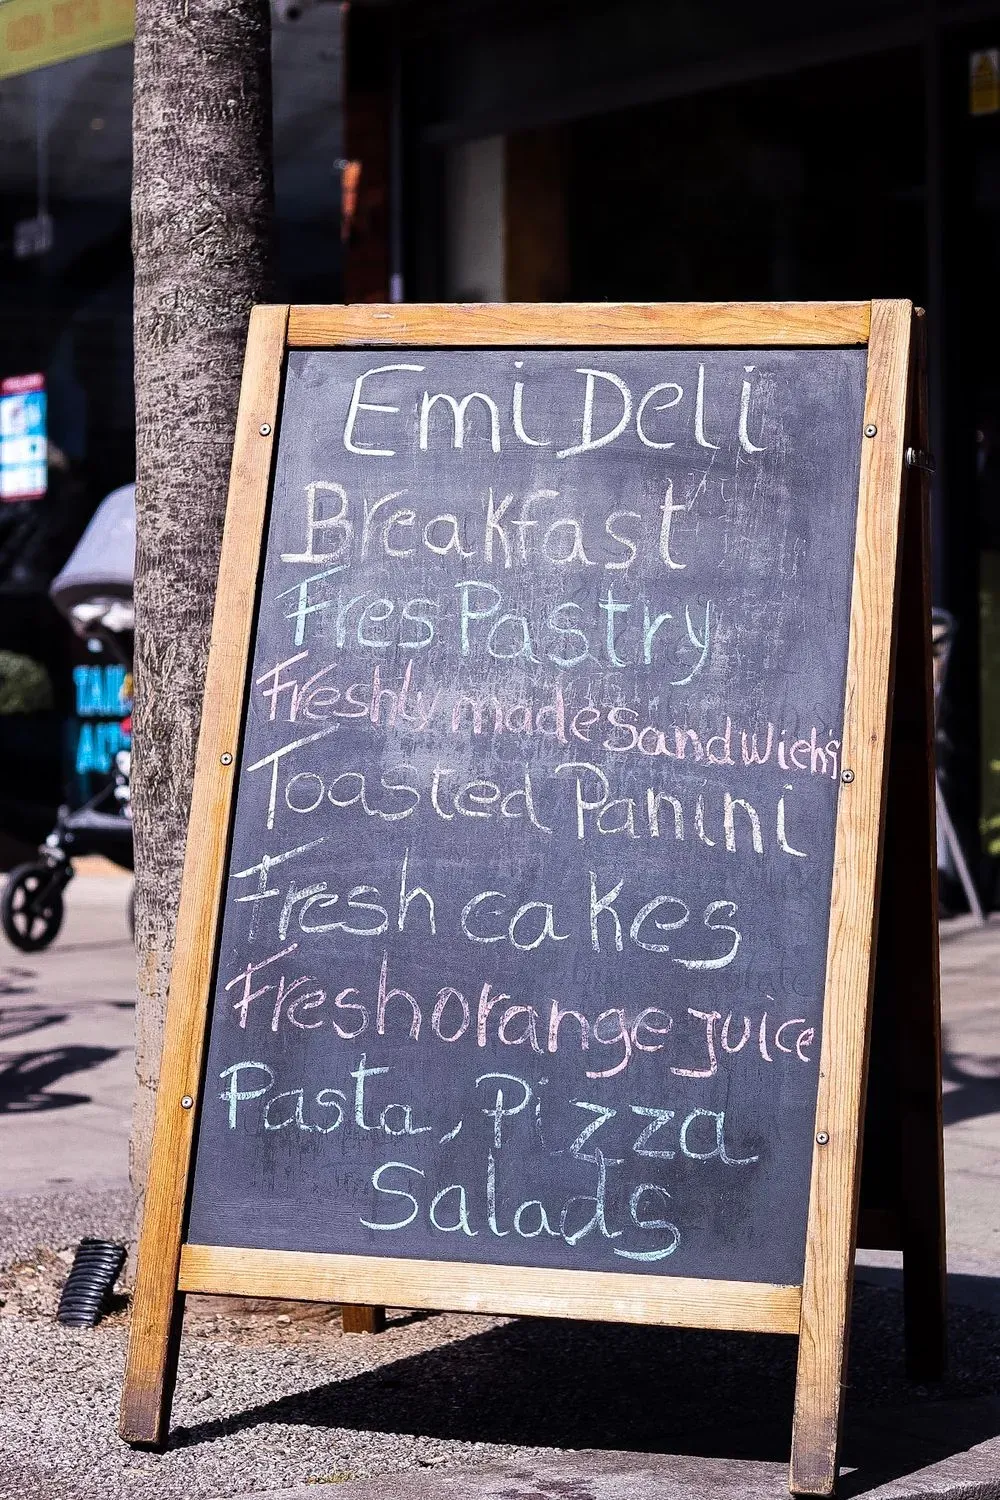 Emi Deli
Breakfast
Fres Pastry
Freshly made sandwich's
Toasted Panini
Fresh cakes
Fresh orange juice
Pasta, Pizza
Salads